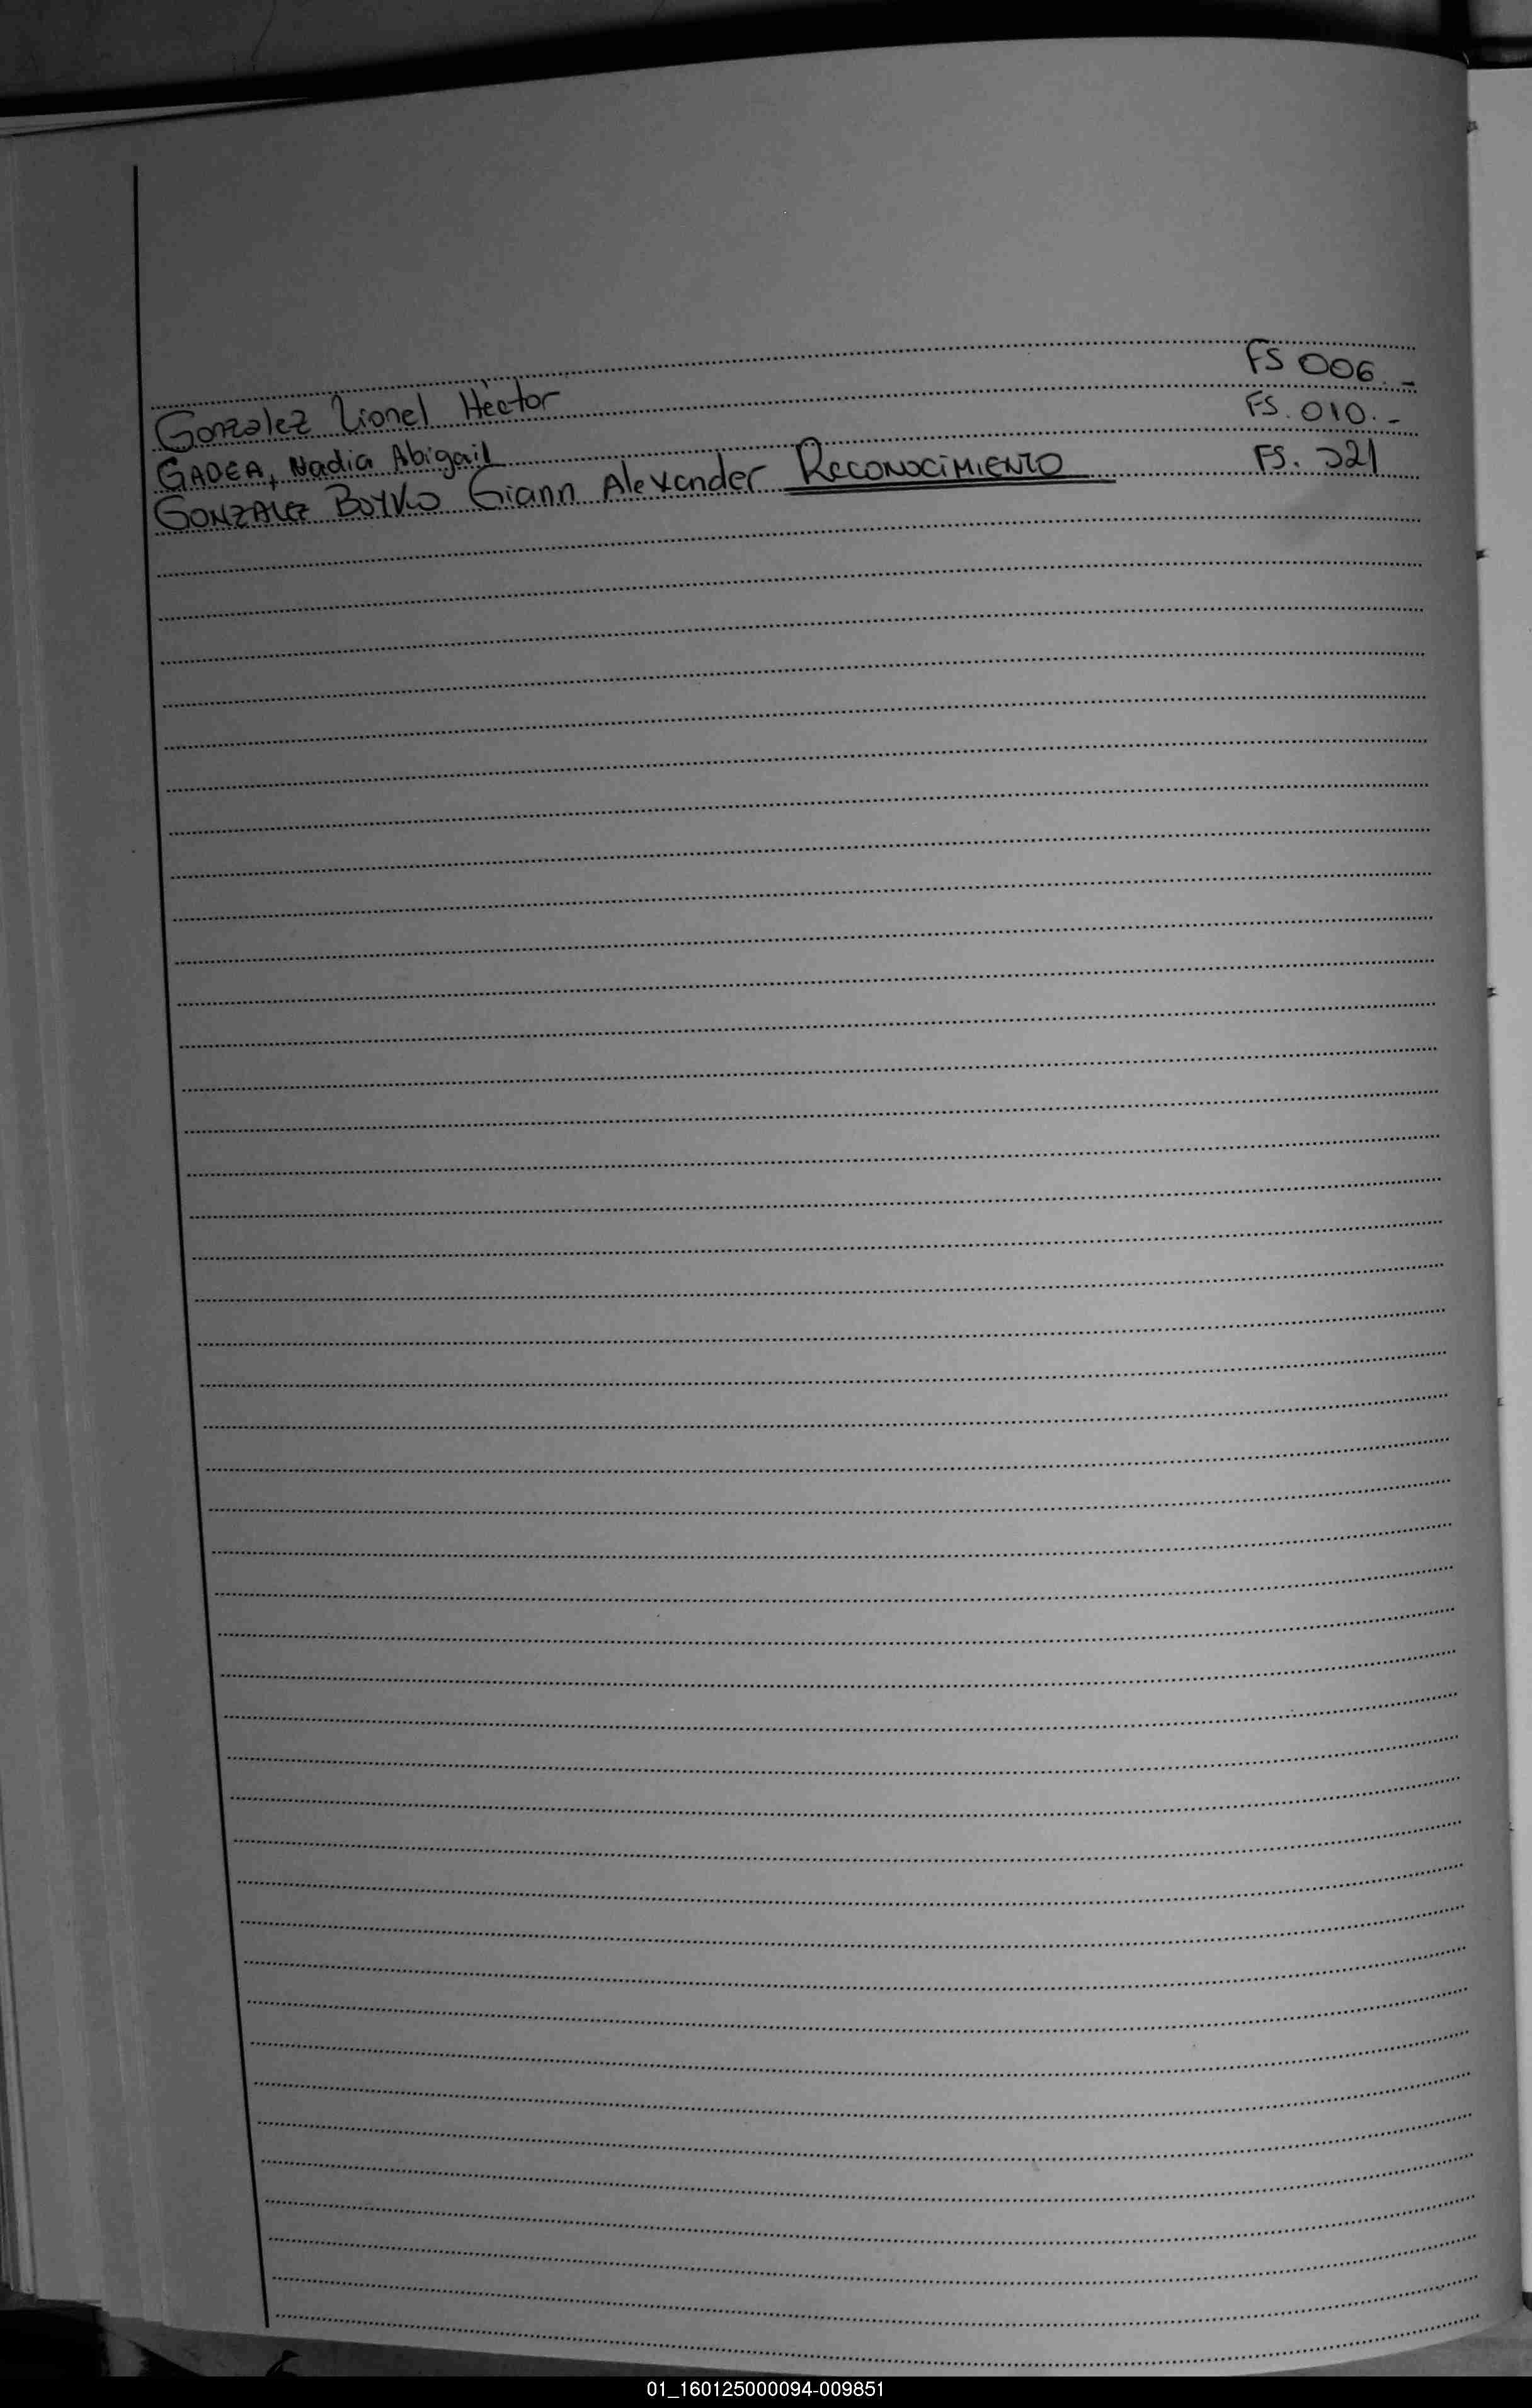 Gonzalez Lionel Hector FS 006.-
GADEA, Nadia Abigail FS. 010.-
GONZALEZ BOYKO Giann Alexander RECONOCIMIENTO FS. 021
01_160125000094-009851